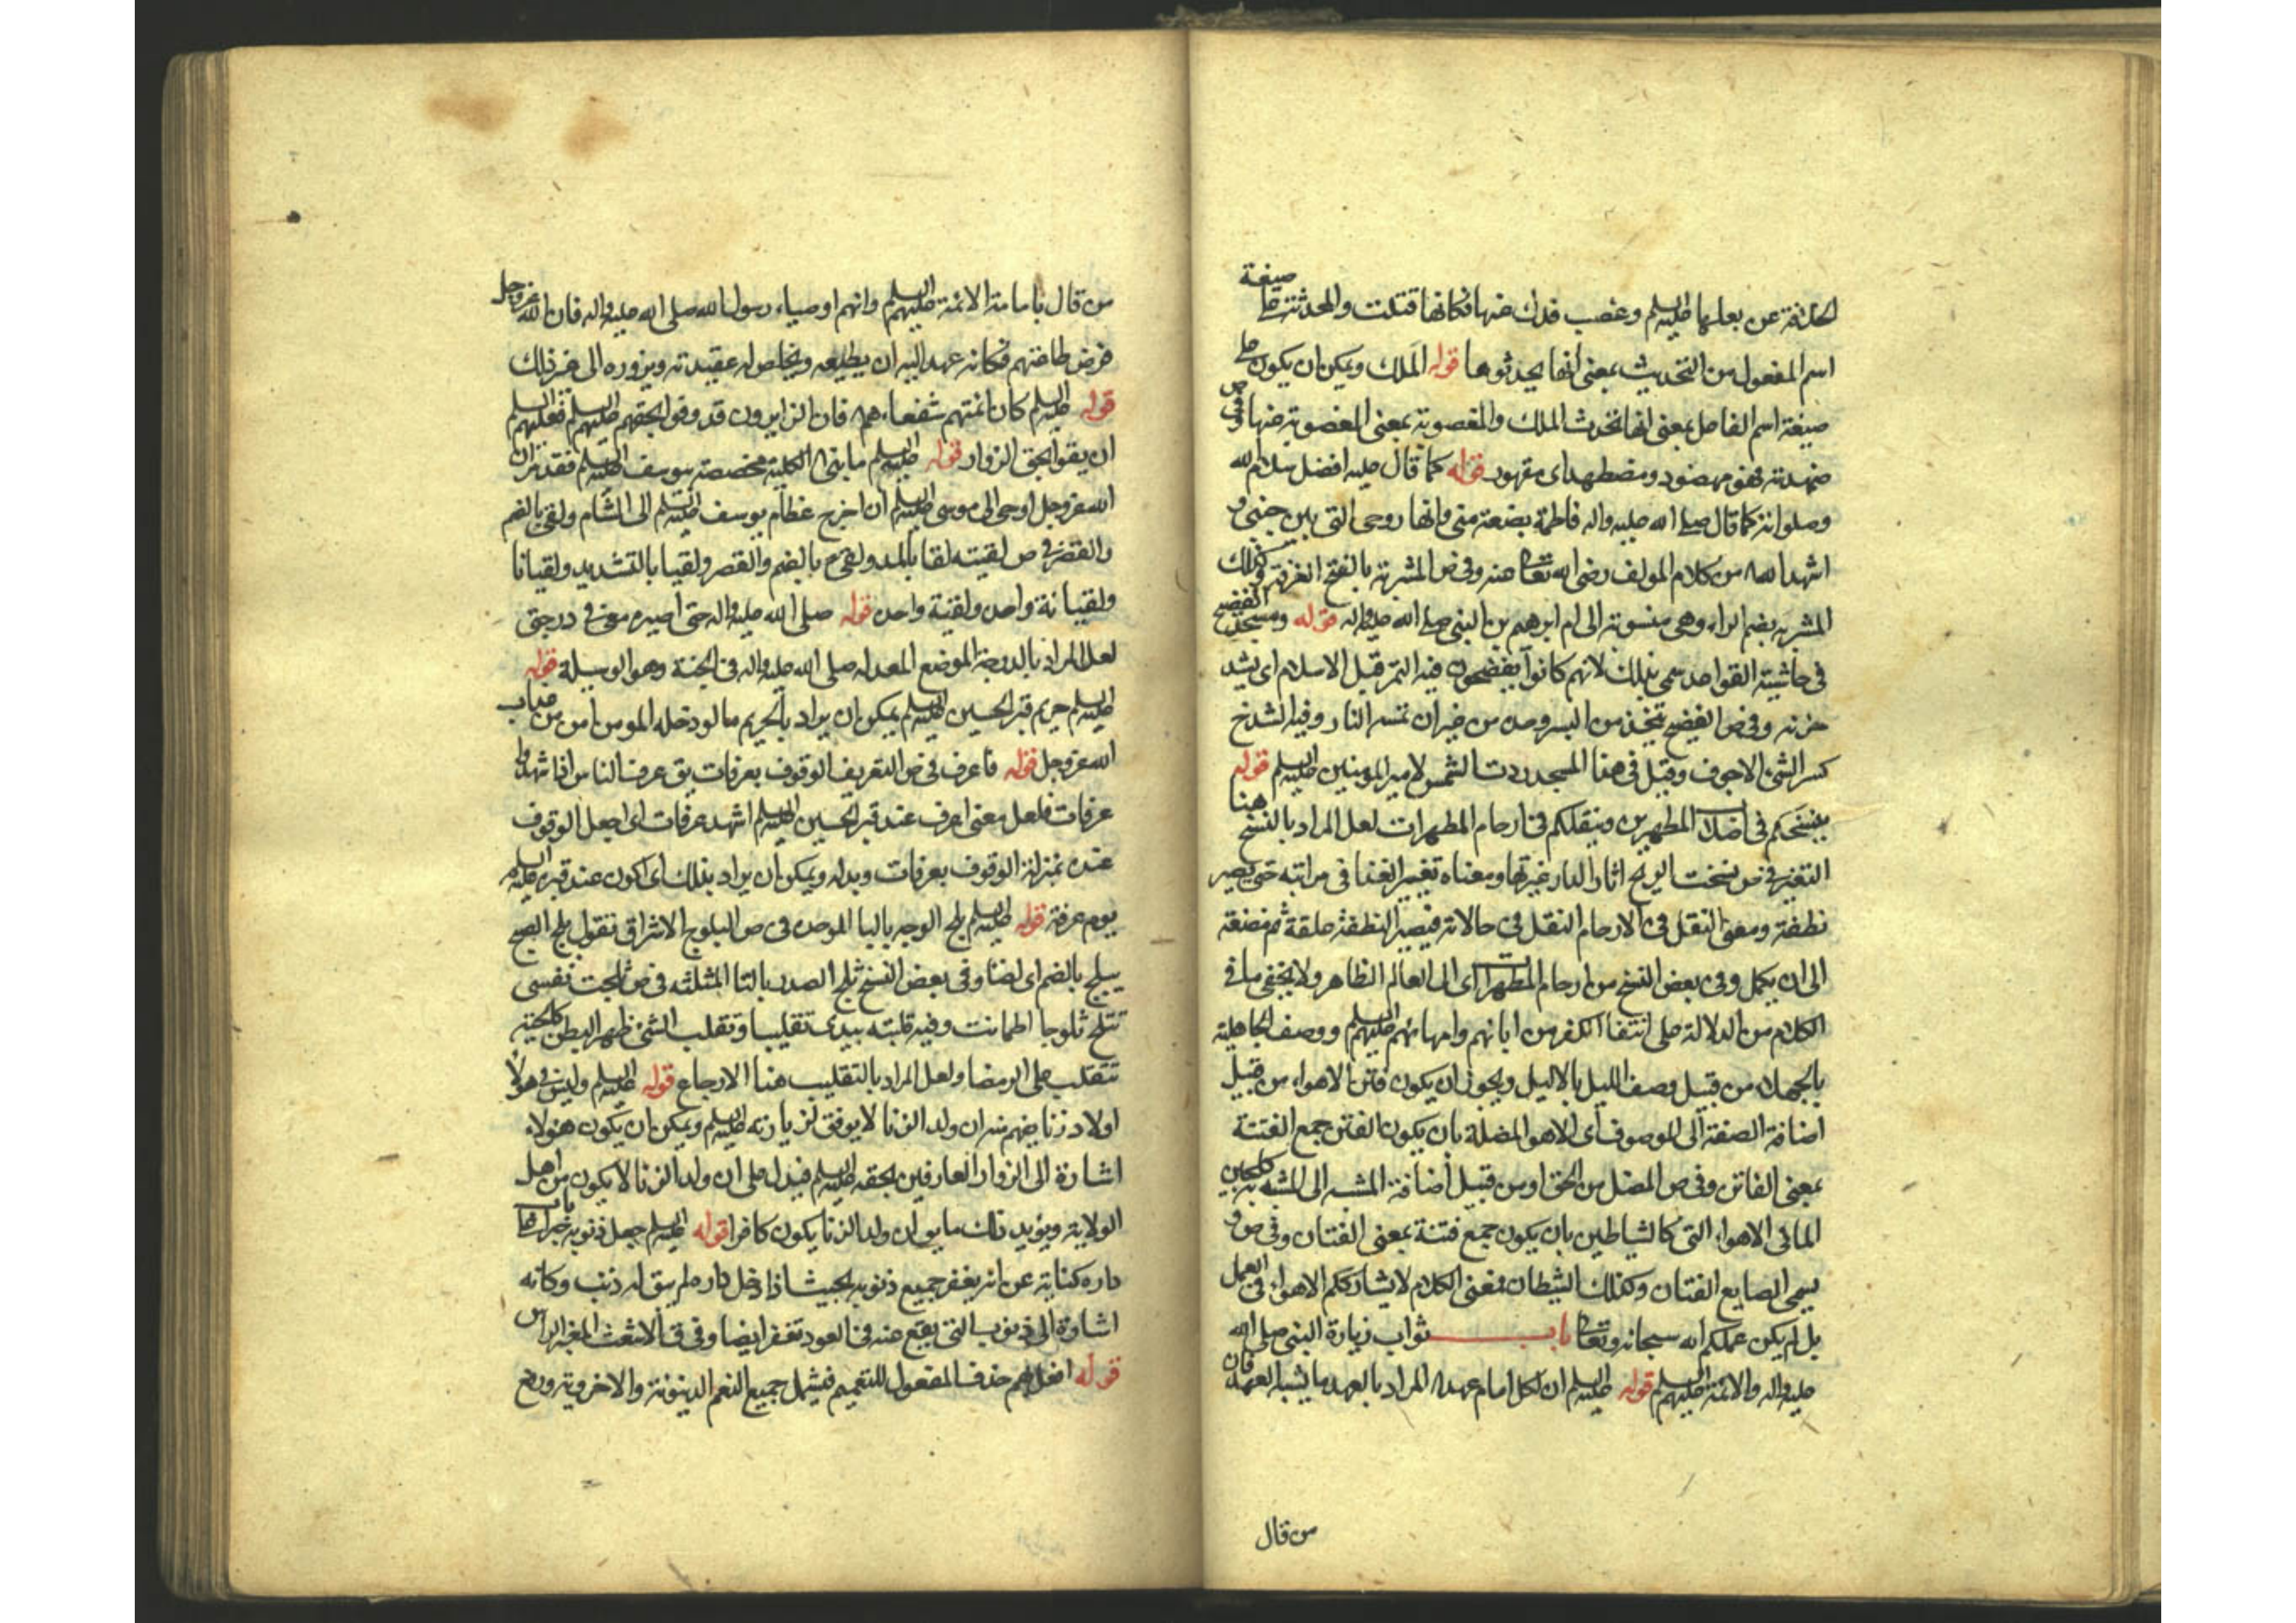 الخلافة عن بعلها عليه السلم وغصب فدك عنها فكانها قتلت والمحدثة على صيغة
اسم المفعول من التحديث بمعنى انها يحدثوها قوله الملك ويمكن ان يكون على
صيغة اسم الفاعل بمعنى انها تحدث الملك والمغصوبة بمعنى المغصوبة عنها وفي ص
ضهدته فهو مضهود ومضطهد اى مقهور قوله كما قال عليه افضل سلام الله
وصلواته كما قال صلى الله عليه واله فاطمة بضعة مني وانها روحى التى بين جنبي و
اشهد الله من كلام المولف رضى الله تعالى عنه وفى ص المشربة بالفتح الغرفة وكذلك
المشربة بضم الراء وهى منسوبة الى ام ابرهيم بن النبي صلى الله عليه واله قوله ومسجد الفضيخ
فى حاشيته القواعد سمى بذلك لانهم كانوا يفضخون فيه التمر قبل الاسلام اى يشد
خونه وفى ص الفضيخ يتخذ من البسر وحده من غير ان تمسه النار وفيه الشدخ
كسر الشئ الاجوف وقيل فى هذا المسجد ردت الشمس لامير المومنين عليه السلم قوله
ينسخكم فى اصلاب المطهرين وينقلكم فى ارحام المطهرات لعل المراد بالنسخ هنا
التغير فى ص نسخت الريح اثار الدار غيرتها ومعناه تغيير الغذا فى مراتبه حتى يصير
نطفة ومعنى النقل فى الارحام النقل فى حالاته فيصير النطفة علقة ثم مضغة
الى ان يكمل وفى بعض النسخ من ارحام المطهرات اى الى العالم الظاهر ولا يخفى ما فى
الكلام من الدلالة على انتفا الكفر من ابائهم وامهاتهم عليهم السلم ووصف الجاهلية
بالجهلاء من قبيل وصف الليل بالاليل ويجوز ان يكون فتن الاهواء من قبيل
اضافة الصفة الى الموصوف اى الاهوا المضلة بان يكون الفتن جمع الفتنة
بمعنى الفاتن وفى ص المضل من الحق او من قبيل اضافة المشبه الى المشبه به كلجين
الما فى الاهواء التى كالشياطين بان يكون جمع فتنة بمعنى الفتان وفى ص و
يسمى الصايغ الفتان وكذلك الشيطان فمعنى الكلام لا يشارككم الاهواء فى العمل
بل لم يكن عملكم لله سبحانه وتعالى باب ثواب زيارة النبي صلى الله
عليه واله والائمة عليهم السلم قوله عليه السلم ان لكل امام عهدا المراد بالعهد ما يشبه العهد فان
من قال
من قال بامامة الائمة عليهم السلم وانهم اوصياء رسول الله صلى الله عليه واله فان الله عز وجل
فرض طاعتهم فكانه عهد اليه ان يطيعه ويخلص له عقيدته ويزوره الى غير ذلك
قوله عليه السلم كان ائمتهم شفعاءهم فان الزايرون قد وفوا بحقهم عليهم السلم فعليهم السلم
ان يفوا بحق الزوار قوله عليه السلم ما بنى الكلية مخصصة بيوسف عليه السلم فقد مر ان
الله عز وجل اوحى الى موسى عليه السلم ان اخرج عظام يوسف عليه السلم الى الشام ولقى بالضم
والقصر فى ص لقيته لقا بالمد ولقى بالضم والقصر ولقيا بالتشديد ولقيانا
ولقيانة واحدة ولقية واحدة قوله صلى الله عليه واله حتى اصيره معى فى درجتى
لعل المراد بالدرجة الموضع المعد له صلى الله عليه واله فى الجنة وهو الوسيلة قوله
عليه السلم حريم قبر الحسين عليه السلم يمكن ان يراد بالحريم ما لو دخله المومن امن من عذاب
الله عز وجل قوله فاعرف فى ص التعريف الوقوف بعرفات يق عرف الناس اذا شهدوا
عرفات فلعل معنى اعرف عند قبر الحسين عليه السلم اشهد عرفات اى اجعل الوقوف
عنده بمنزلة الوقوف بعرفات وبدله ويمكن ان يراد بذلك اى اكون عند قبره عليه السلم
يوم عرفة قوله عليه السلم بلج الوجه بالبا الموحدة فى ص البلوج الاشراق تقول بلج الصبح
يبلج بالضم اى اضا وفى بعض النسخ ثلج الصدر بالثا المثلثه فى ص ثلجت نفسى
تثلج ثلوجا اطمانت وفيه قلبته بيدى تقليبا وتقلب الشئ ظهرا لبطن كالحية
تتقلب على الرمضا ولعل المراد بالتقليب هنا الارجاع قوله عليه السلم وليس فى هولا
اولاد زنا يفهم منه ان ولد الزنا لا يوفق لزيارته عليه السلم ويمكن ان يكون هولاء
اشارة الى الزوار العارفين بحقه عليه السلم فيدل على ان ولد الزنا لا يكون من اهل
الولاية ويؤيد ذلك ما يو ان ولد الزنا يكون كافرا قوله عليه السلم جعل ذنوبه جسرا على باب
داره كناية عن انه يغفر جميع ذنوبه بحيث اذا دخل داره لم يبق له ذنب وكانه
اشارة الى ذنوب التى يقع منه فى العود تغفر ايضا وفى ق الاشعث المغبر الراس
قوله افعل بهم حذف المفعول للتعميم فيشمل جميع النعم الدينوية والاخروية ورفع